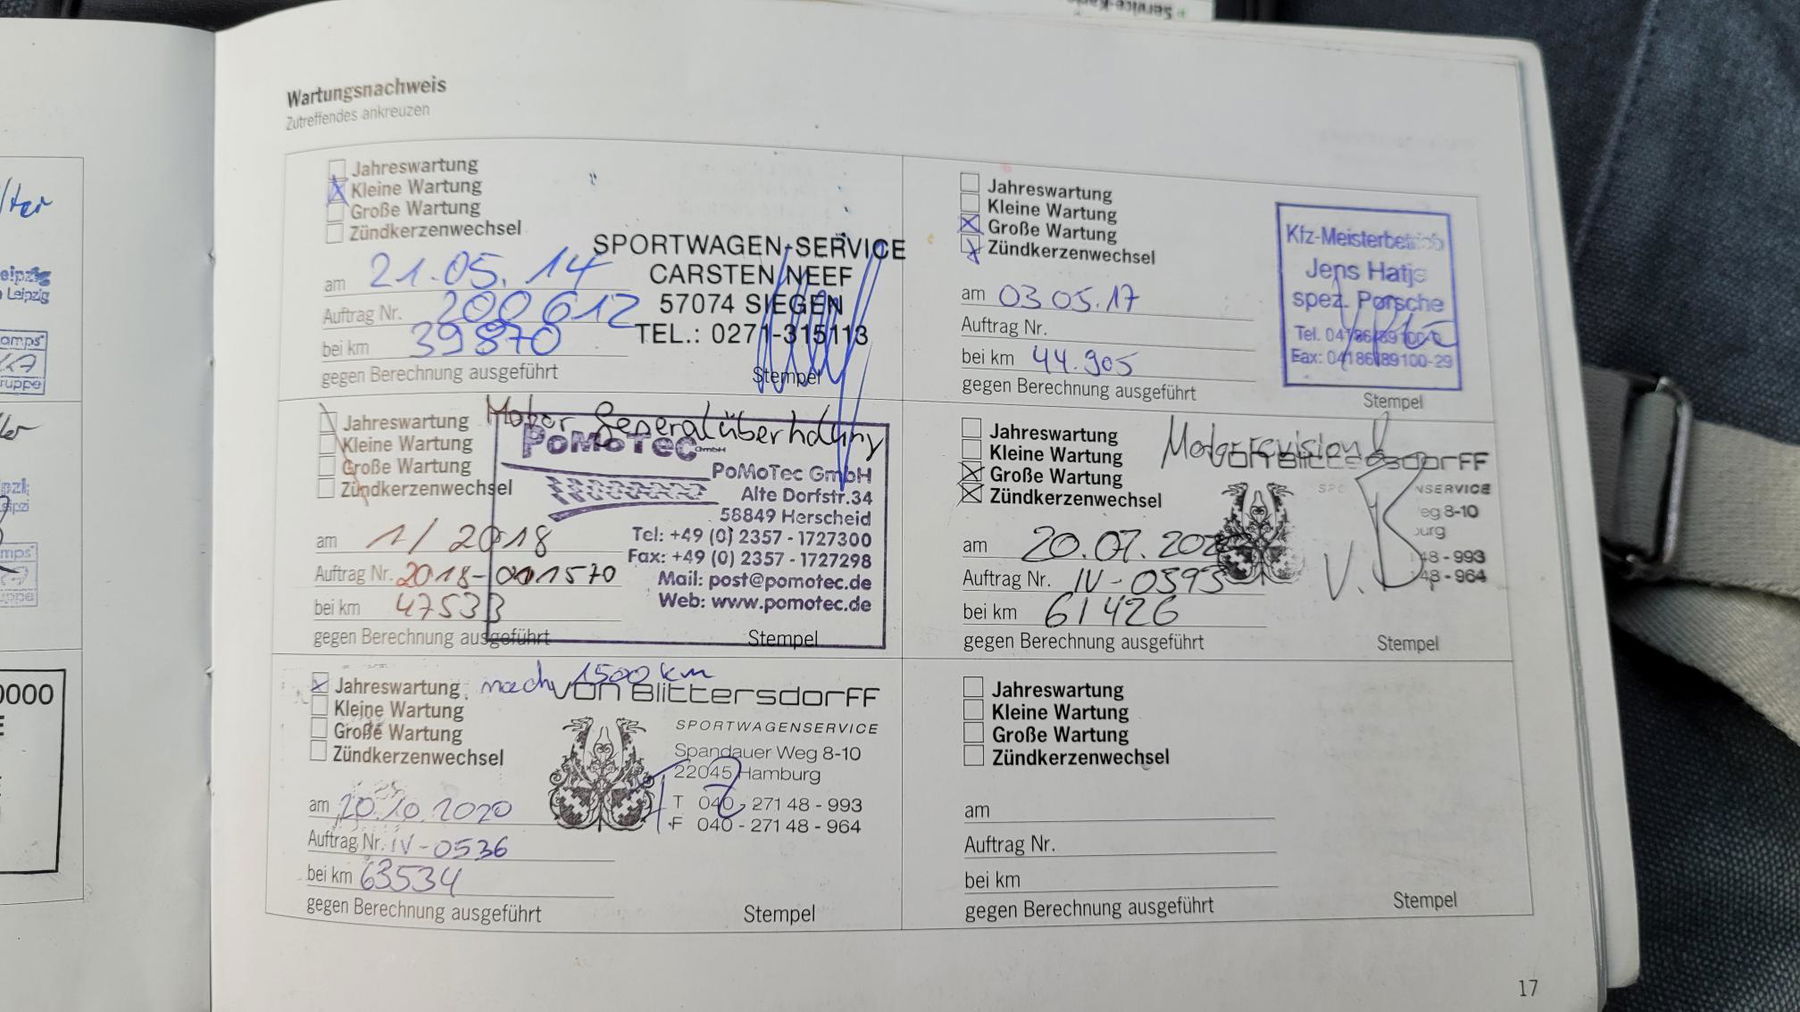 + Service-Karte
Wartungsnachweis
Zutreffendes ankreuzen
Jahreswartung
Kleine Wartung
Große Wartung
Zündkerzenwechsel
am 21.05.14
Auftrag Nr. 200612
bei km 39870
gegen Berechnung ausgeführt
SPORTWAGEN-SERVICE
CARSTEN NEEF
57074 SIEGEN
TEL.: 0271-315113
Stempel
Jahreswartung
Kleine Wartung
Große Wartung
Zündkerzenwechsel
am 03.05.17
Auftrag Nr.
bei km 44.905
gegen Berechnung ausgeführt
Kfz-Meisterbetrieb
Jens Hatje
spez. Porsche
Tel. 04186/89100-0
Fax: 04186/89100-29
Stempel
Jahreswartung
Kleine Wartung
Große Wartung
Zündkerzenwechsel
am 1/2018
Auftrag Nr. 2018-001570
bei km 47533
gegen Berechnung ausgeführt
Motor Generalüberholung
PoMoTec GmbH
PoMoTec GmbH
Alte Dorfstr.34
58849 Herscheid
Tel: +49 (0) 2357 - 1727300
Fax: +49 (0) 2357 - 1727298
Mail: post@pomotec.de
Web: www.pomotec.de
Stempel
Jahreswartung
Kleine Wartung
Große Wartung
Zündkerzenwechsel
am 20.07.202
Auftrag Nr. IV-0393
bei km 61426
gegen Berechnung ausgeführt
Motorrevision
von Blittersdorff
NSERVICE
eg 8-10
burg
48 - 993
48 - 964
Stempel
Jahreswartung nach 1500 km
Kleine Wartung
Große Wartung
Zündkerzenwechsel
am 20.10.2020
Auftrag Nr. IV-0536
bei km 63534
gegen Berechnung ausgeführt
von Blittersdorff
SPORTWAGENSERVICE
Spandauer Weg 8-10
22045 Hamburg
T 040 - 271 48 - 993
F 040 - 271 48 - 964
Stempel
Jahreswartung
Kleine Wartung
Große Wartung
Zündkerzenwechsel
am
Auftrag Nr.
bei km
gegen Berechnung ausgeführt
Stempel
17